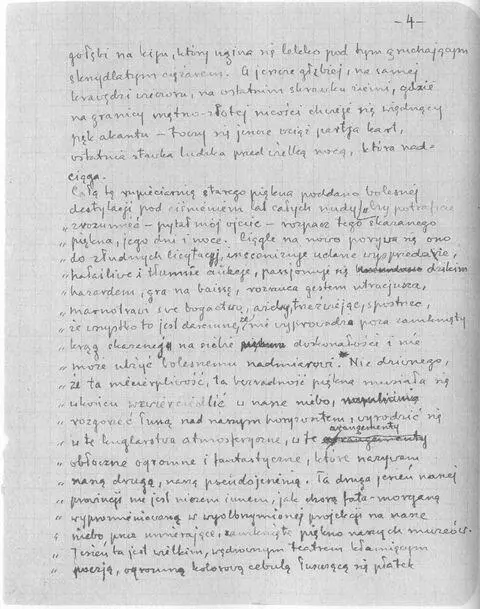 -4-
gołębi na kiju, który ugina się lekko pod tym gruchającym
skrzydlatym ciężarem. A jeszcze głębiej, na samej
krawędzi wieczoru, na ostatnim skrawku ziemi, gdzie
na granicy mętno-złotej nicości chwieje się więdnący
pęk akantu – toczy się jeszcze wciąż partja kart,
ostatnia stawka ludzka przed wielką nocą, która nad-
ciąga.
Całą tę rupieciarnię starego piękna poddano bolesnej
destylacji pod ciśnieniem lat całych nudy. „Czy potraficie
„ zrozumieć – pytał mój ojciec – rozpacz tego skazanego
„ piękna, jego dni i noce. Ciągle na nowo porywa się ono
„ do złudnych licytacyj, inscenizuje udane wyprzedaże,
„ hałaśliwe i tłumne aukcje, pasjonuje się dzikim
„ hazardem, gra na baissę, rozrzuca gestem utracjusza,
„ marnotrawi swe bogactwo, ażeby, trzeźwiejąc, spostrzec,
„ że wszystko to jest daremne, nie wyprowadza poza zamknięty
„ krąg skazanej na siebie doskonałości i nie
„ może ulżyć bolesnemu nadmiarowi. Nic dziwnego,
„ że ta niecierpliwość, ta bezradność piękna musiała się
„ wkońcu wzwierciedlić w nasze niebo,
„ rozgorzeć łuną nad naszym horyzontem, wyrodzić się
„ w te kuglarstwa atmosferyczne, w te arangementy
„ obłoczne ogromne i fantastyczne, które nazywam
„ naszą drugą, naszą pseudojesienią. Ta druga jesień naszej
„ prowincji nie jest niczem innem, jak chorą fata-morganą
„ wypromieniowaną w wyolbrzymionej projekcji na nasze
„ niebo, przez umierające, zamknięte piękno naszych muzeów.
„ Jesień ta jest wielkim, wędrownym teatrem kłamiącym
„ poezją, ogromną kolorową cebulą łuszczącą się płatek